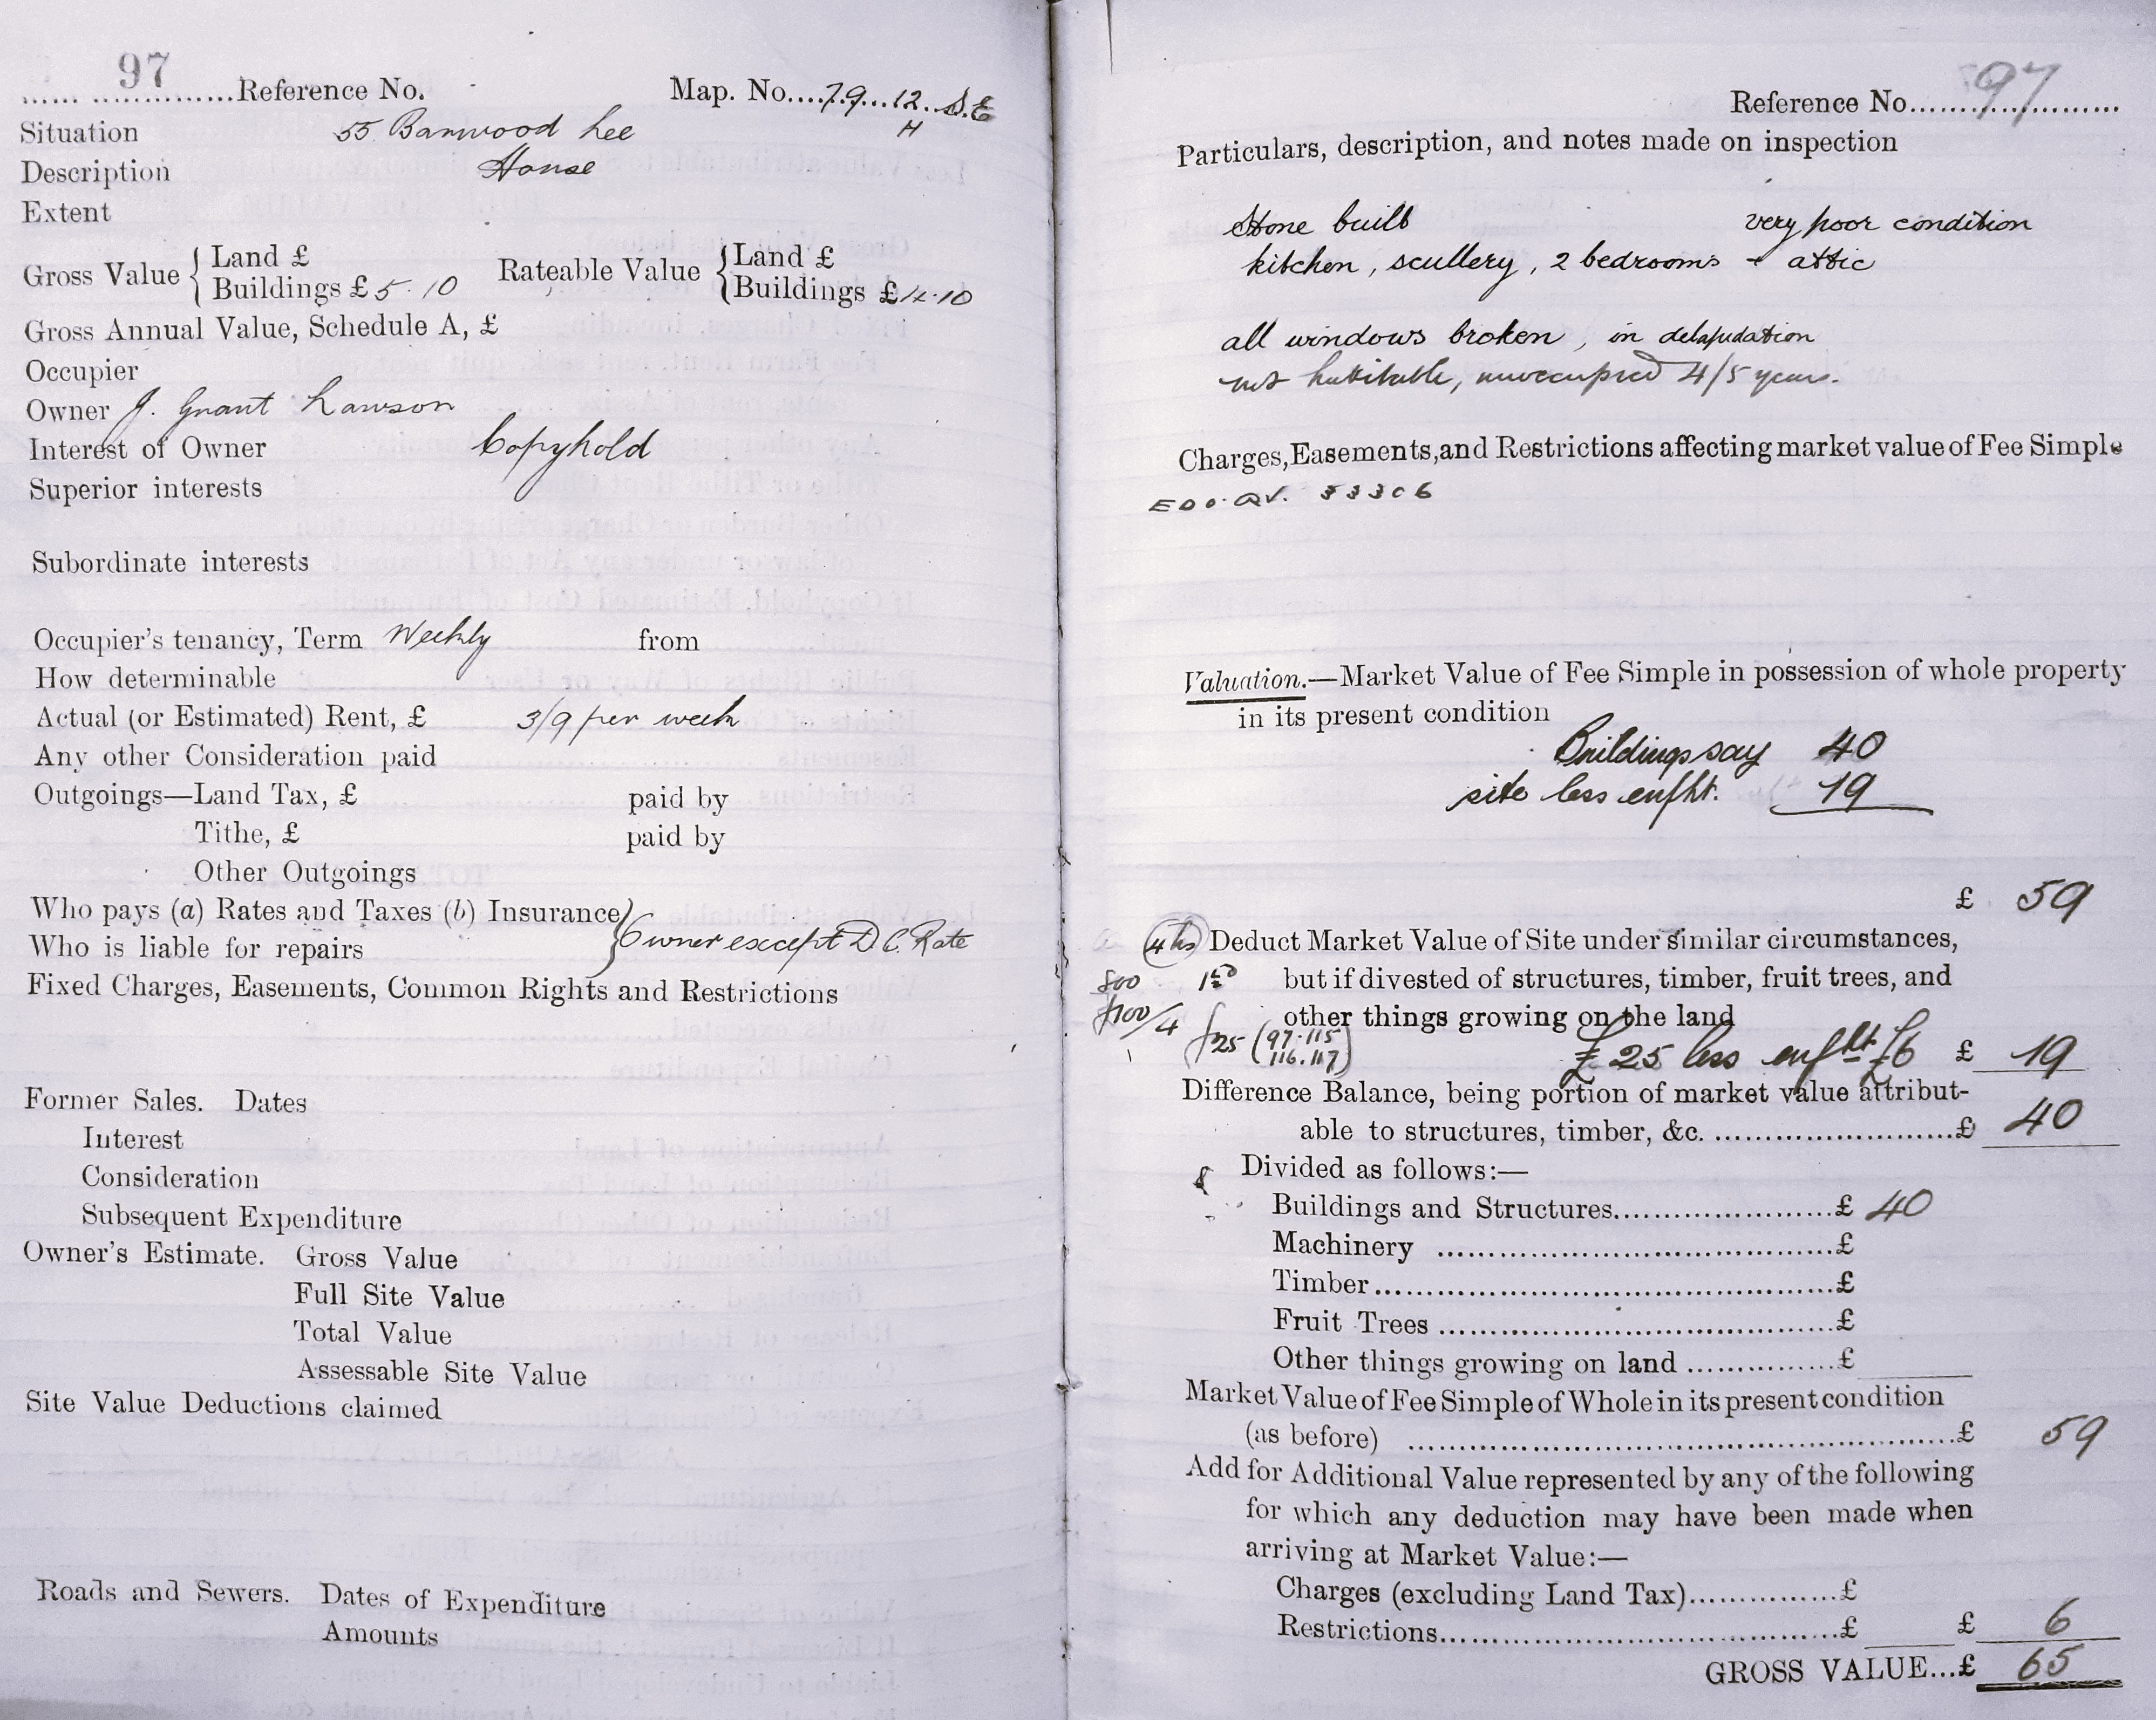 97
...... ..............Reference No.
Map. No....79...12..S.E
H
Situation 55 Barwood Lee
Description House
Extent
Gross Value { Land £
Buildings £ 5.10
Rateable Value { Land £
Buildings £ 4.10
Gross Annual Value, Schedule A, £
Occupier
Owner J. Grant Lawson
Interest of Owner Copyhold
Superior interests
Subordinate interests
Occupier's tenancy, Term Weekly from
How determinable
Actual (or Estimated) Rent, £ 3/9 per week
Any other Consideration paid
Outgoings—Land Tax, £ paid by
Tithe, £ paid by
Other Outgoings
Who pays (a) Rates and Taxes (b) Insurance
Who is liable for repairs } Owner except D C. Rate
Fixed Charges, Easements, Common Rights and Restrictions
Former Sales. Dates
Interest
Consideration
Subsequent Expenditure
Owner's Estimate. Gross Value
Full Site Value
Total Value
Assessable Site Value
Site Value Deductions claimed
Roads and Sewers. Dates of Expenditure
Amounts
Reference No......97......
Particulars, description, and notes made on inspection
Stone built very poor condition
kitchen, scullery, 2 bedrooms + attic
all windows broken, in delapudation
not habitable, unoccupied 4/5 years.
Charges, Easements, and Restrictions affecting market value of Fee Simple
33306
Valuation.—Market Value of Fee Simple in possession of whole property
in its present condition
Buildings say 40
site less enfht. 19
£ 59
Deduct Market Value of Site under similar circumstances,
800 but if divested of structures, timber, fruit trees, and
£100/4 other things growing on the land
£25 (97.115
116.117)
£25 less enfht £6 £ 19
Difference Balance, being portion of market value attribut-
able to structures, timber, &c. ........................£ 40
Divided as follows:—
Buildings and Structures......................£ 40
Machinery ........................................£
Timber..............................................£
Fruit Trees .......................................£
Other things growing on land ..............£
Market Value of Fee Simple of Whole in its present condition
(as before) .......................................................£ 59
Add for Additional Value represented by any of the following
for which any deduction may have been made when
arriving at Market Value:—
Charges (excluding Land Tax)...............£
Restrictions.......................................£ £ 6
GROSS VALUE...£ 65